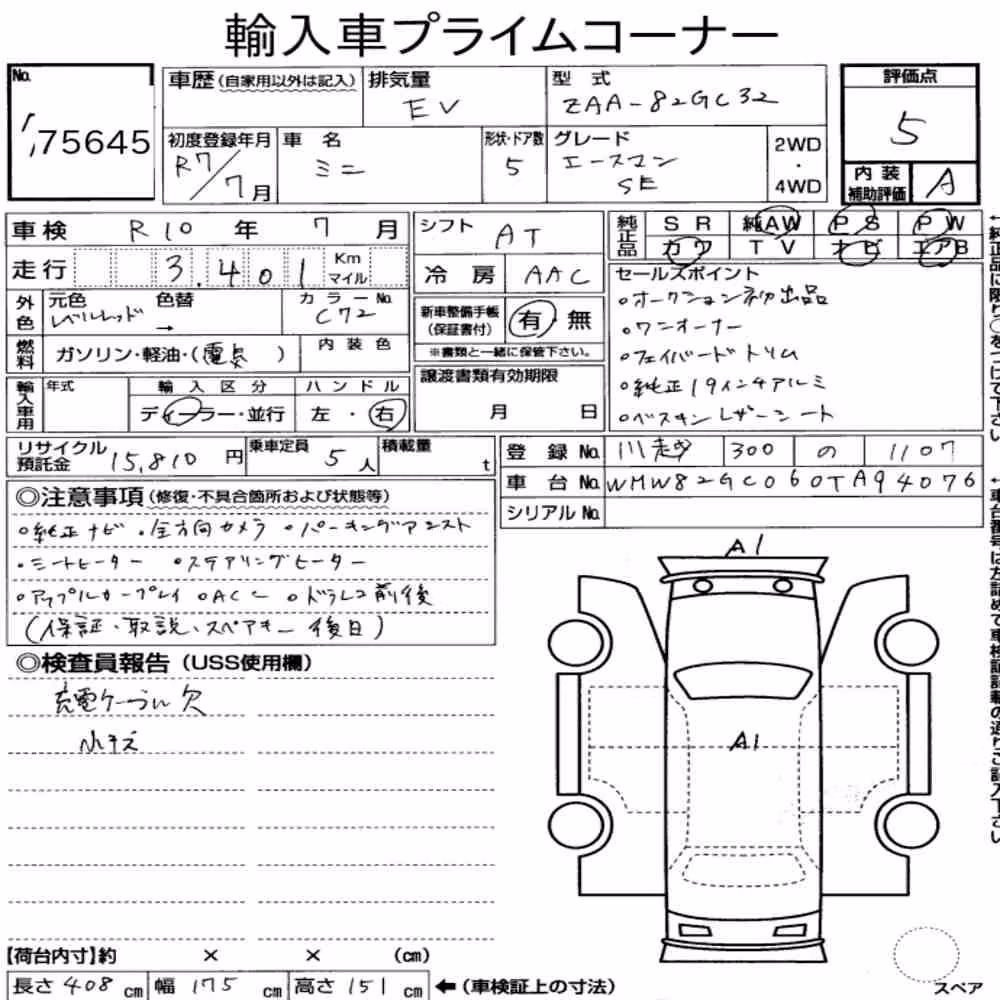 輸入車プライムコーナー
No. 75645
車歴(自家用以外は記入) 排気量 EV 型式 ZAA-82GC32
評価点 5
初度登録年月 R7/7月 車名 ミニ 形状・ドア数 5 グレード エースマン SE 2WD・4WD
内装補助評価 A
車検 R10年 7月 シフト AT 純正品 SR 純AW PS PW
カワ TV ナビ エアB
走行 3,401 Km マイル 冷房 AAC
セールスポイント
○オークション初出品
○ワンオーナー
○フェイバードトリム
○純正19インチアルミ
○ベスキンレザーシート
外色 元色 レベルレッド 色替 → カラーNo. C72
新車整備手帳(保証書付) 有・無
※書類と一緒に保管下さい。
燃料 ガソリン・軽油・(電気) 内装色
譲渡書類有効期限 月 日
輸入車用 年式 輸入区分 ディーラー・並行 ハンドル 左・右
リサイクル預託金 15,810円 乗車定員 5人 積載量 t
登録No. 川越 300 の 1107
車台No. WMW82GC060TA94076
シリアルNo.
◎注意事項(修復・不具合箇所および状態等)
○純正ナビ ・全方向カメラ ○パーキングアシスト
・シートヒーター ○ステアリングヒーター
○アップルカープレイ ○ACC ○ドラレコ前後
(保証・取説・スペアキー後日)
◎検査員報告(USS使用欄)
充電ケーブル欠
小キズ
A1
A1
【荷台内寸】約 × × (cm)
長さ 408 cm 幅 175 cm 高さ 151 cm ←(車検証上の寸法)
スペア
←純正品に限り○をつけて下さい
←車台番号は左詰めで車検証記載の通りご記入下さい